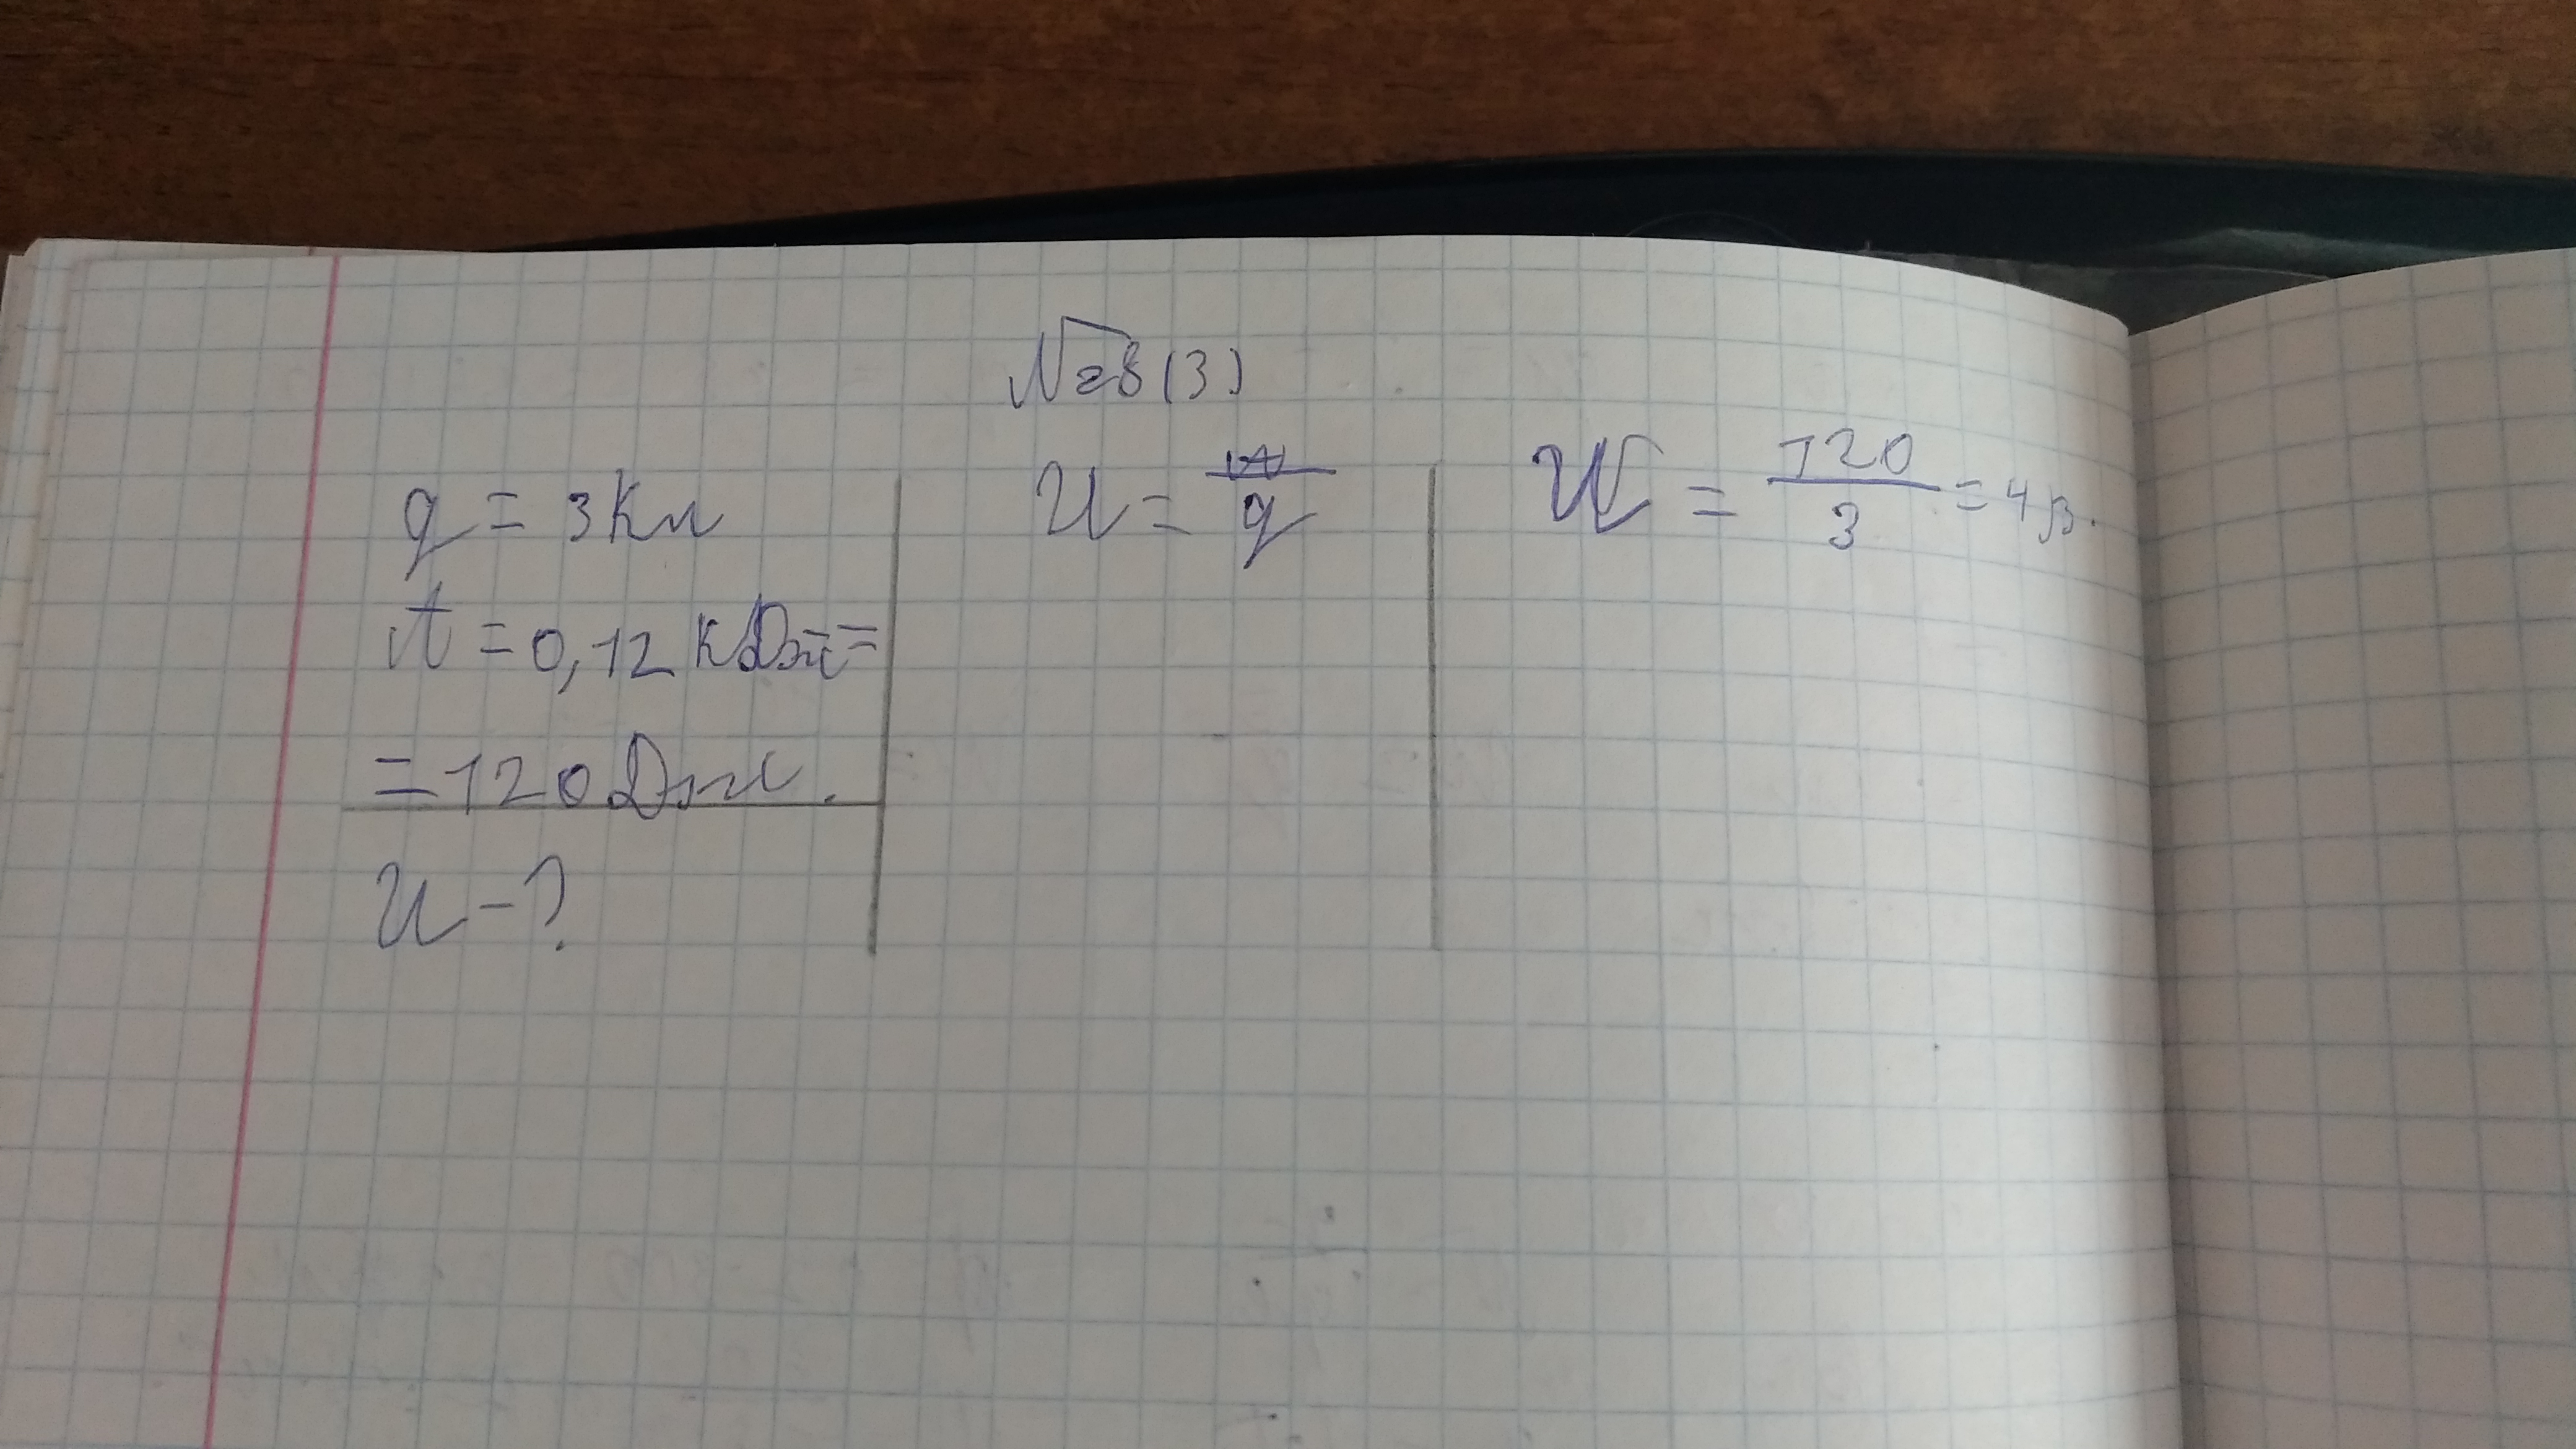 №28(3)
q = 3 Кл
A = 0,12 кДж =
= 120 Дж.
U - ?
U = A/q
U = 120/3 = 4 В.